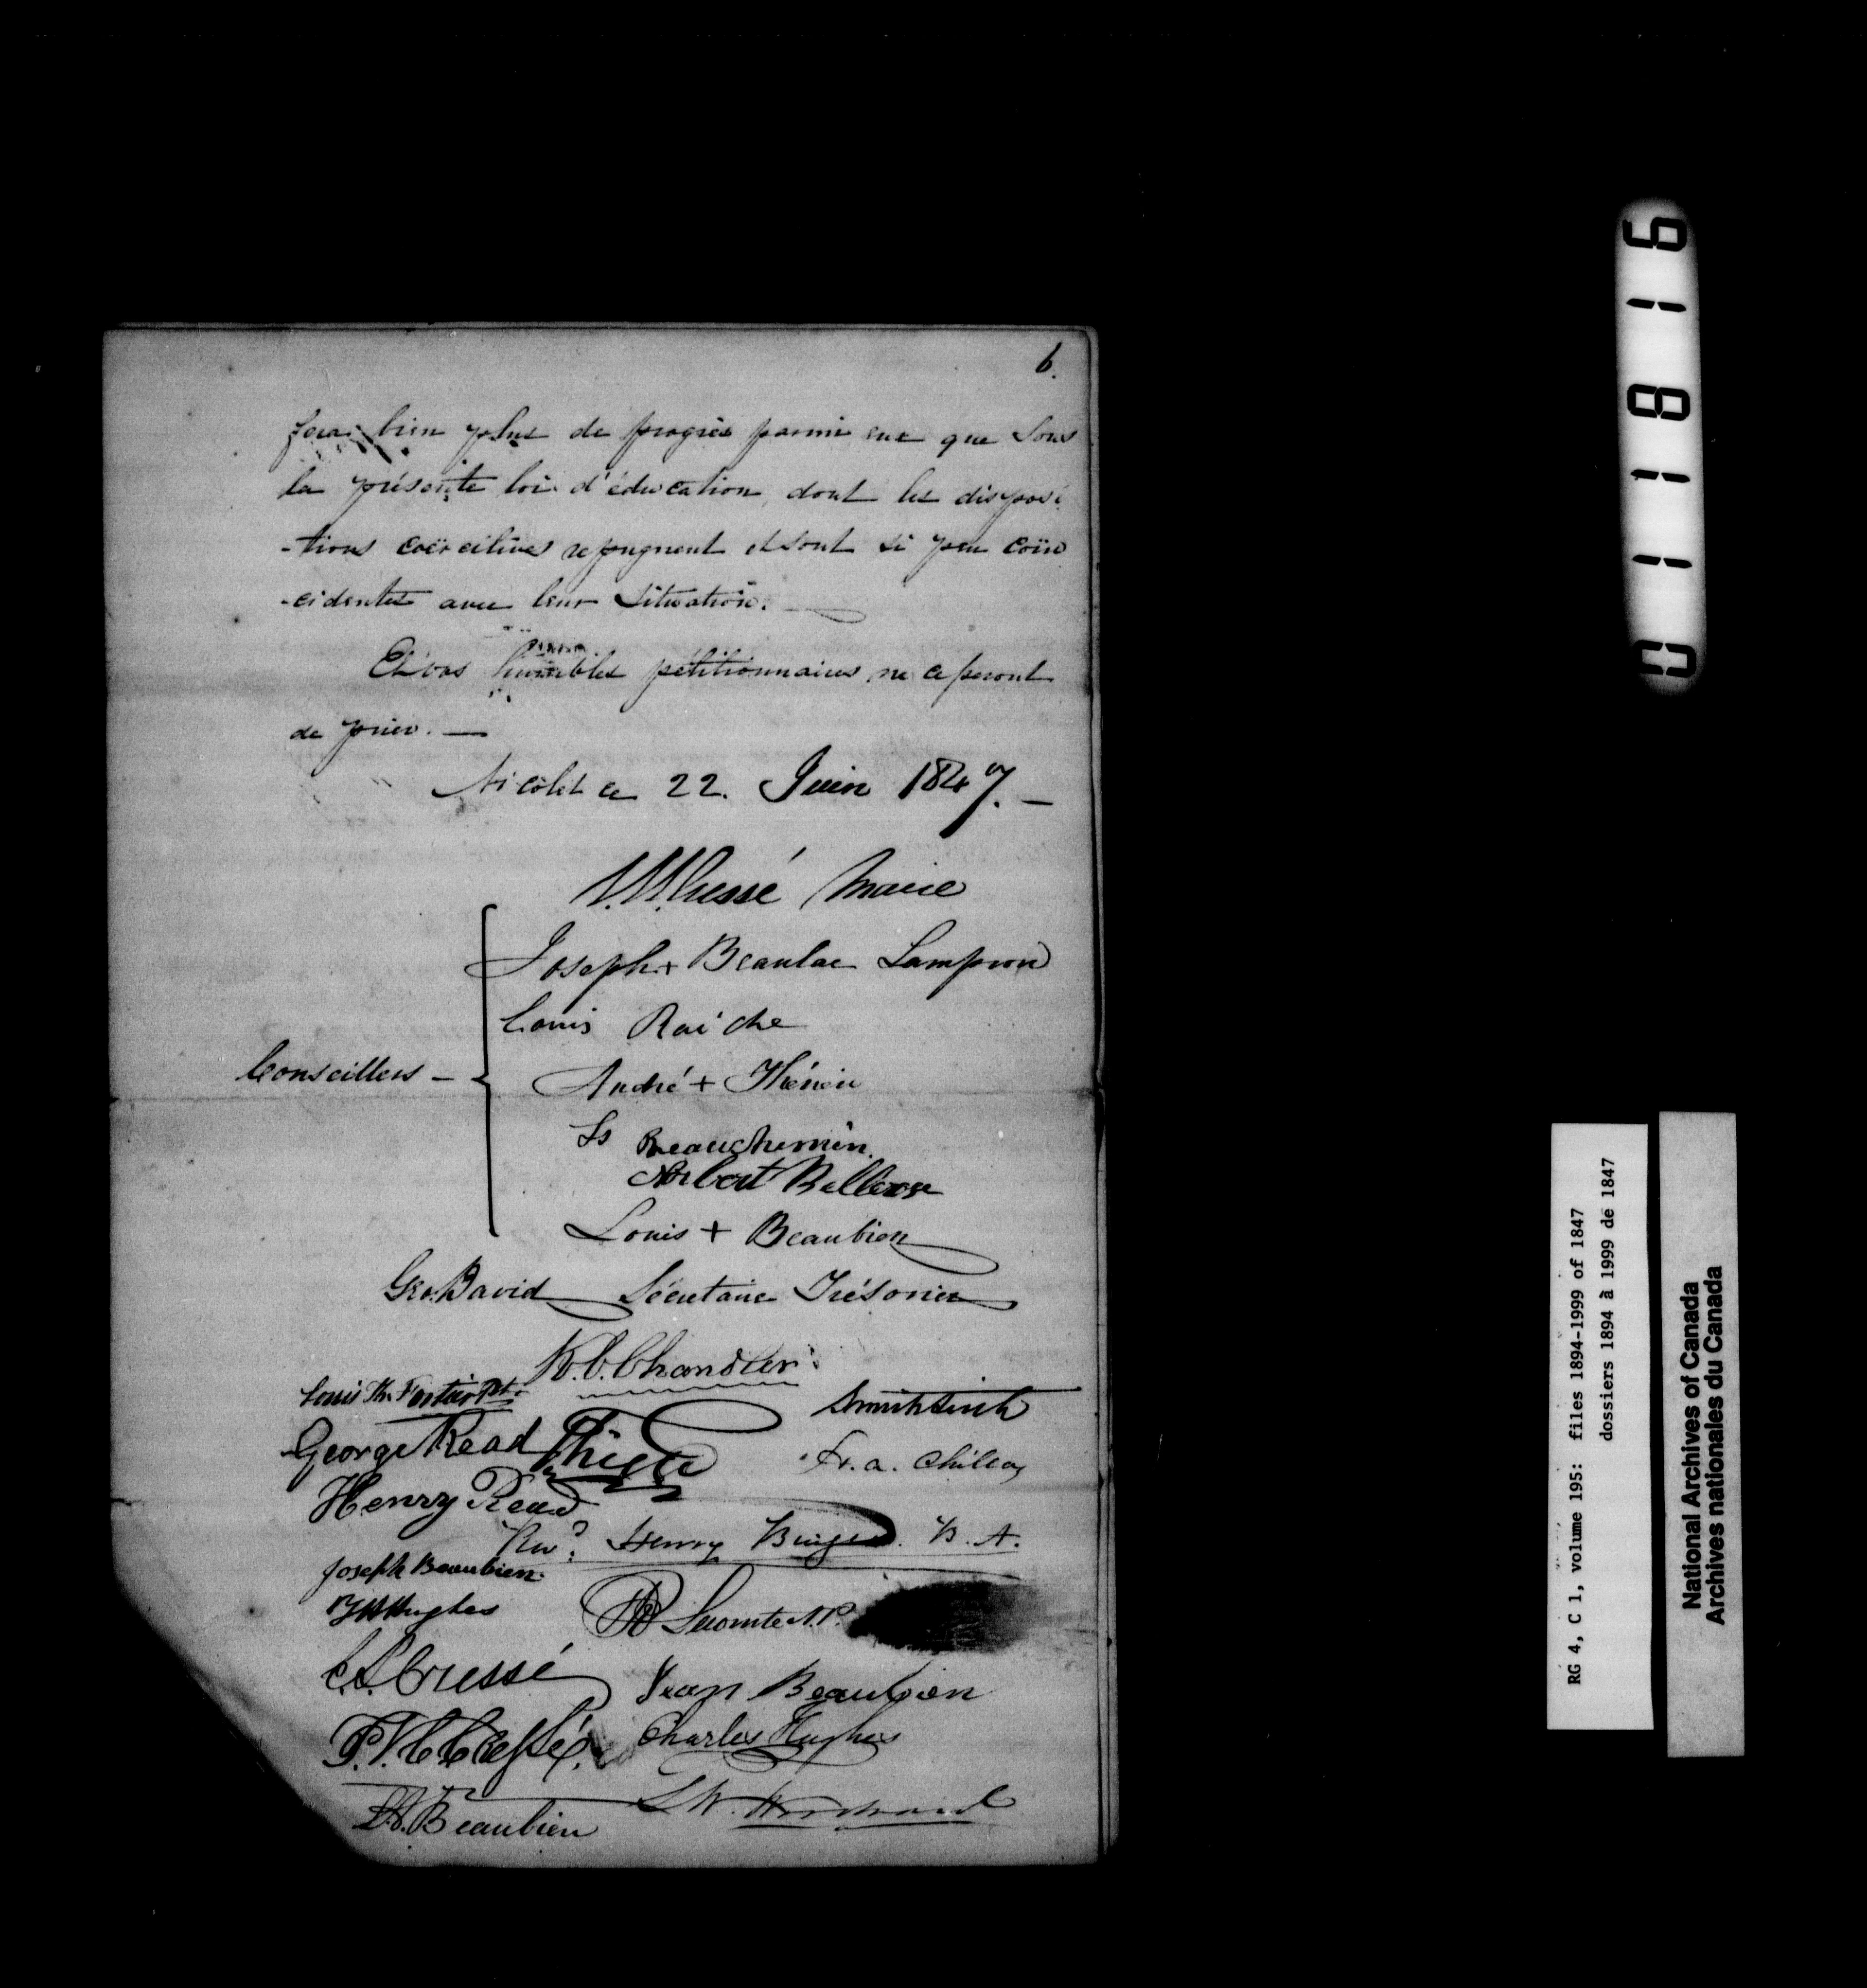 6.
fera bien plus de progrès parmi eux que sous
la présente loi d'éducation, dont les disposi
-tions coërcitives repugnent et sont si peu coïn
-cidentes avec leur situation.
Et vos humbles pétitionnaires ne cesseront
de prier. —
Nicolet ce 22. Juin 1847. —
Cressé Maire
Joseph + Beaulac Lampron
Louis Raiche
Conseillers —
André + Thénin
Ls Beauchemin.
Norbert Bellerose
Louis + Beaubien
Geo. David Sécretaire Trésorier
K. C. Chandler
Louis Th. Fortier Ptr.
George Read
Henry Read
Revd. Henry Burges. B. A.
Joseph Beaubien
Hughes
Lecomte N.P.
Cressé
Jean Beaubien
Cressé.
Charles Hughes
Beaubien
011816
RG 4, C 1, volume 195: files 1894-1999 of 1847
dossiers 1894 à 1999 de 1847
National Archives of Canada
Archives nationales du Canada